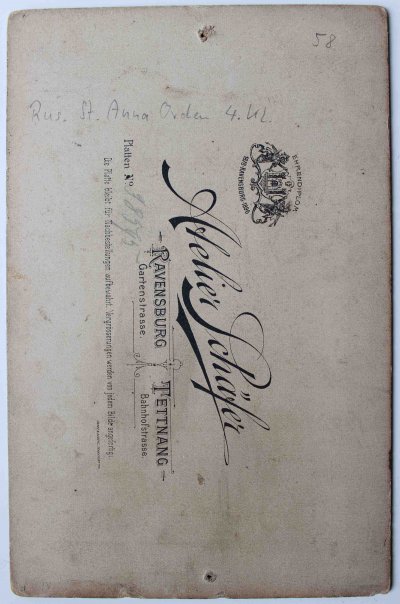 58
Rus. St. Anna Orden 4. Kl.
EHRENDIPLOM
RAVENSBURG
Atelier Schäfer
RAVENSBURG TETTNANG
Gartenstrasse Bahnhofstrasse.
Platten No.
Die Platte bleibt für Nachbestellungen aufbewahrt. Vergrösserungen werden von jedem Bilde angefertigt.